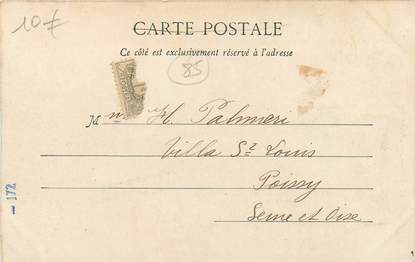 10€
CARTE POSTALE
Ce côté est exclusivement réservé à l'adresse
85
M me H. Palmieri
Villa St Louis
Poissy
Seine et Oise
— 172